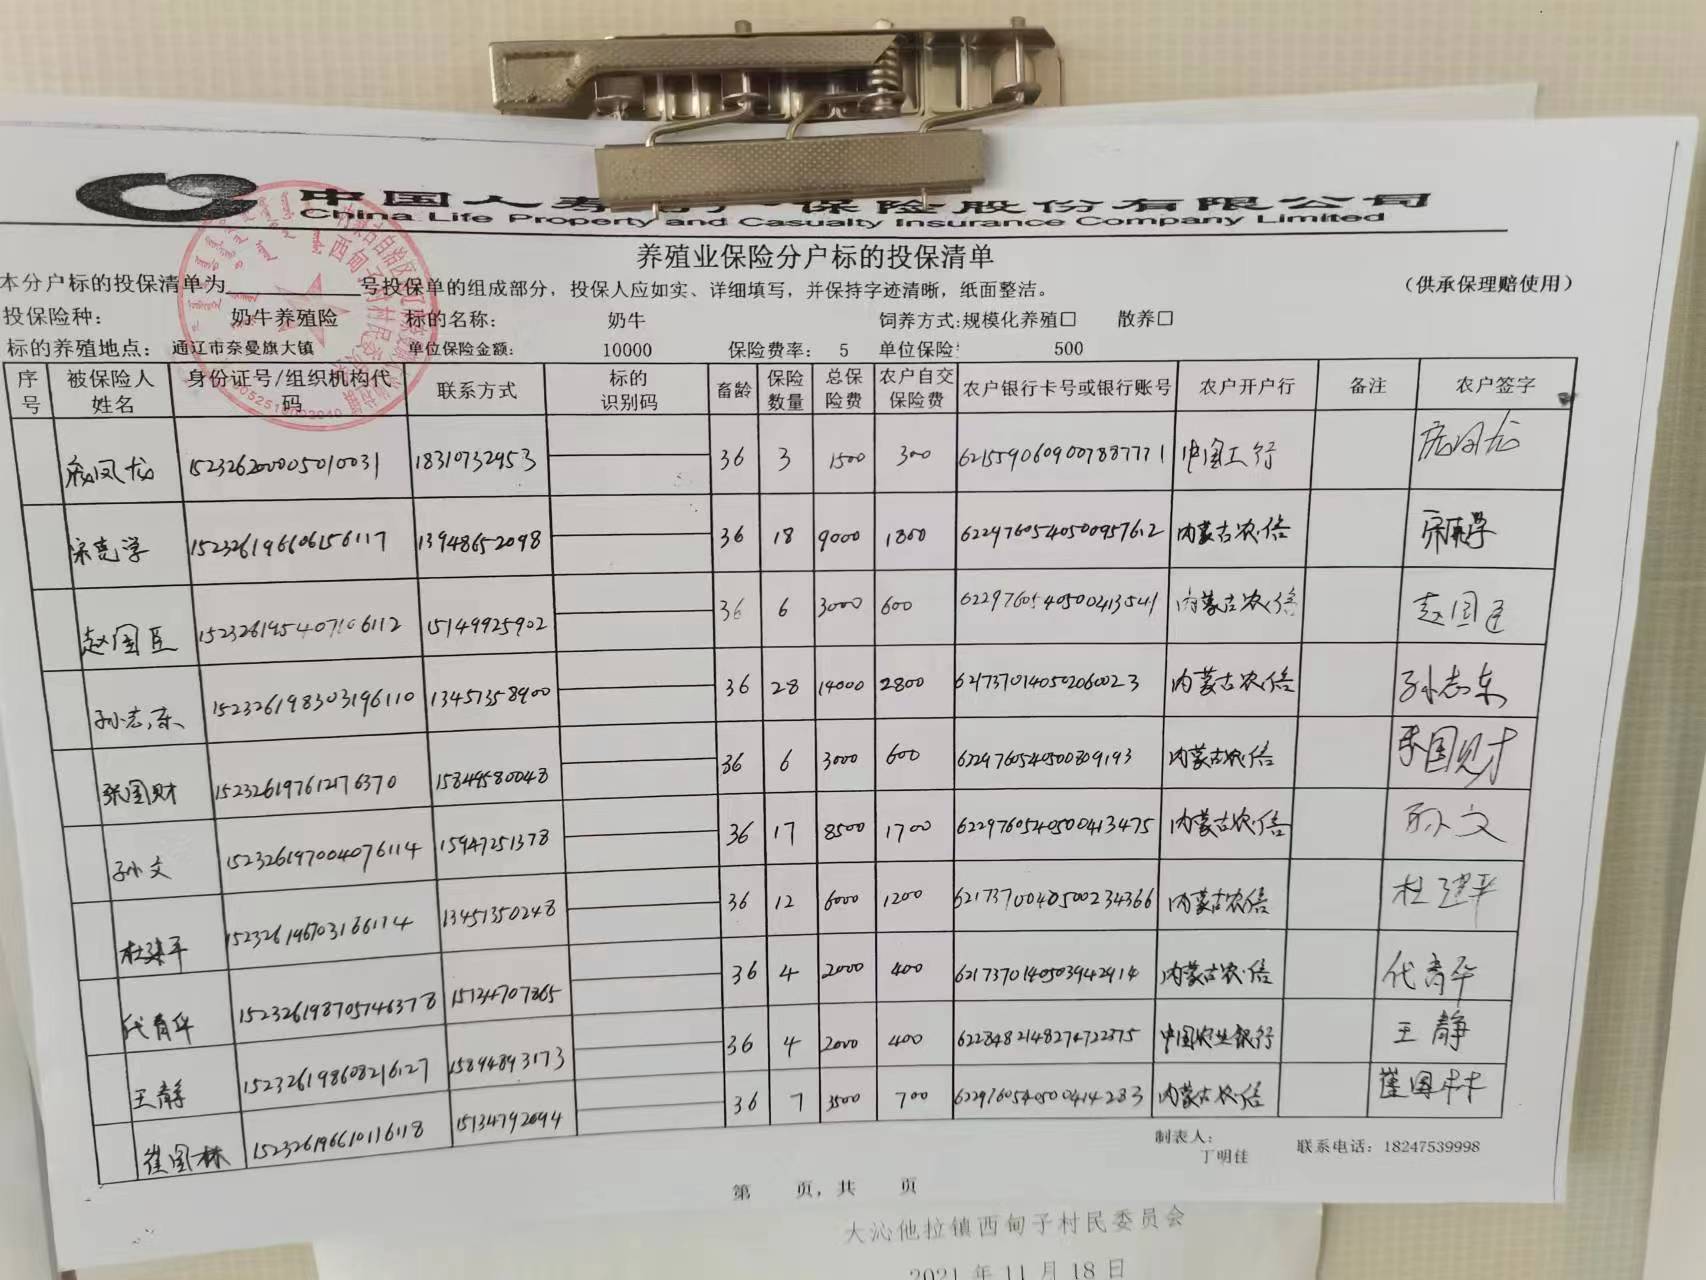 中国人寿财产保险股份有限公司
China Life Property and Casualty Insurance Company Limited
养殖业保险分户标的投保清单
本分户标的投保清单为 号投保单的组成部分，投保人应如实、详细填写，并保持字迹清晰，纸面整洁。 （供承保理赔使用）
投保险种： 奶牛养殖险 标的名称： 奶牛 饲养方式:规模化养殖□ 散养□
标的养殖地点： 通辽市奈曼旗大镇 单位保险金额： 10000 保险费率： 5 单位保险 500
序号 被保险人姓名 身份证号/组织机构代码 联系方式 标的识别码 畜龄 保险数量 总保险费 农户自交保险费 农户银行卡号或银行账号 农户开户行 备注 农户签字
凤龙 152326200005010031 18310732953 36 3 1500 300 6215590609007887771 中国工行 凤龙
宋克学 152326196606156117 13948652098 36 18 9000 1800 6229760540500957612 内蒙古农信 宋克学
赵国臣 152326195407106112 15149925902 36 6 3000 600 6229760540500413541 内蒙古农信 赵国臣
孙志东 152326198303196110 13451358900 36 28 14000 2800 6217370140502060023 内蒙古农信 孙志东
张国财 152326197612176370 15849580048 36 6 3000 600 6229760540500809193 内蒙古农信 国财
孙文 152326197004076114 15947251378 36 17 8500 1700 6229760540500413475 内蒙古农信 孙文
杜建平 152326196703166114 13451350248 36 12 6000 1200 6217370040500234366 内蒙古农信 杜建平
代青华 152326198705146378 15124707865 36 4 2000 400 6217370140503942914 内蒙古农信 代青华
王静 152326198608216127 15894893173 36 4 2000 400 6228482148274722575 中国农业银行 王静
崔国林 152326196610116118 15134792094 36 7 3500 700 6229760540500414283 内蒙古农信 崔国林
制表人： 丁明佳 联系电话：18247539998
第 页，共 页
大沁他拉镇西甸子村民委员会
2021年11月18日